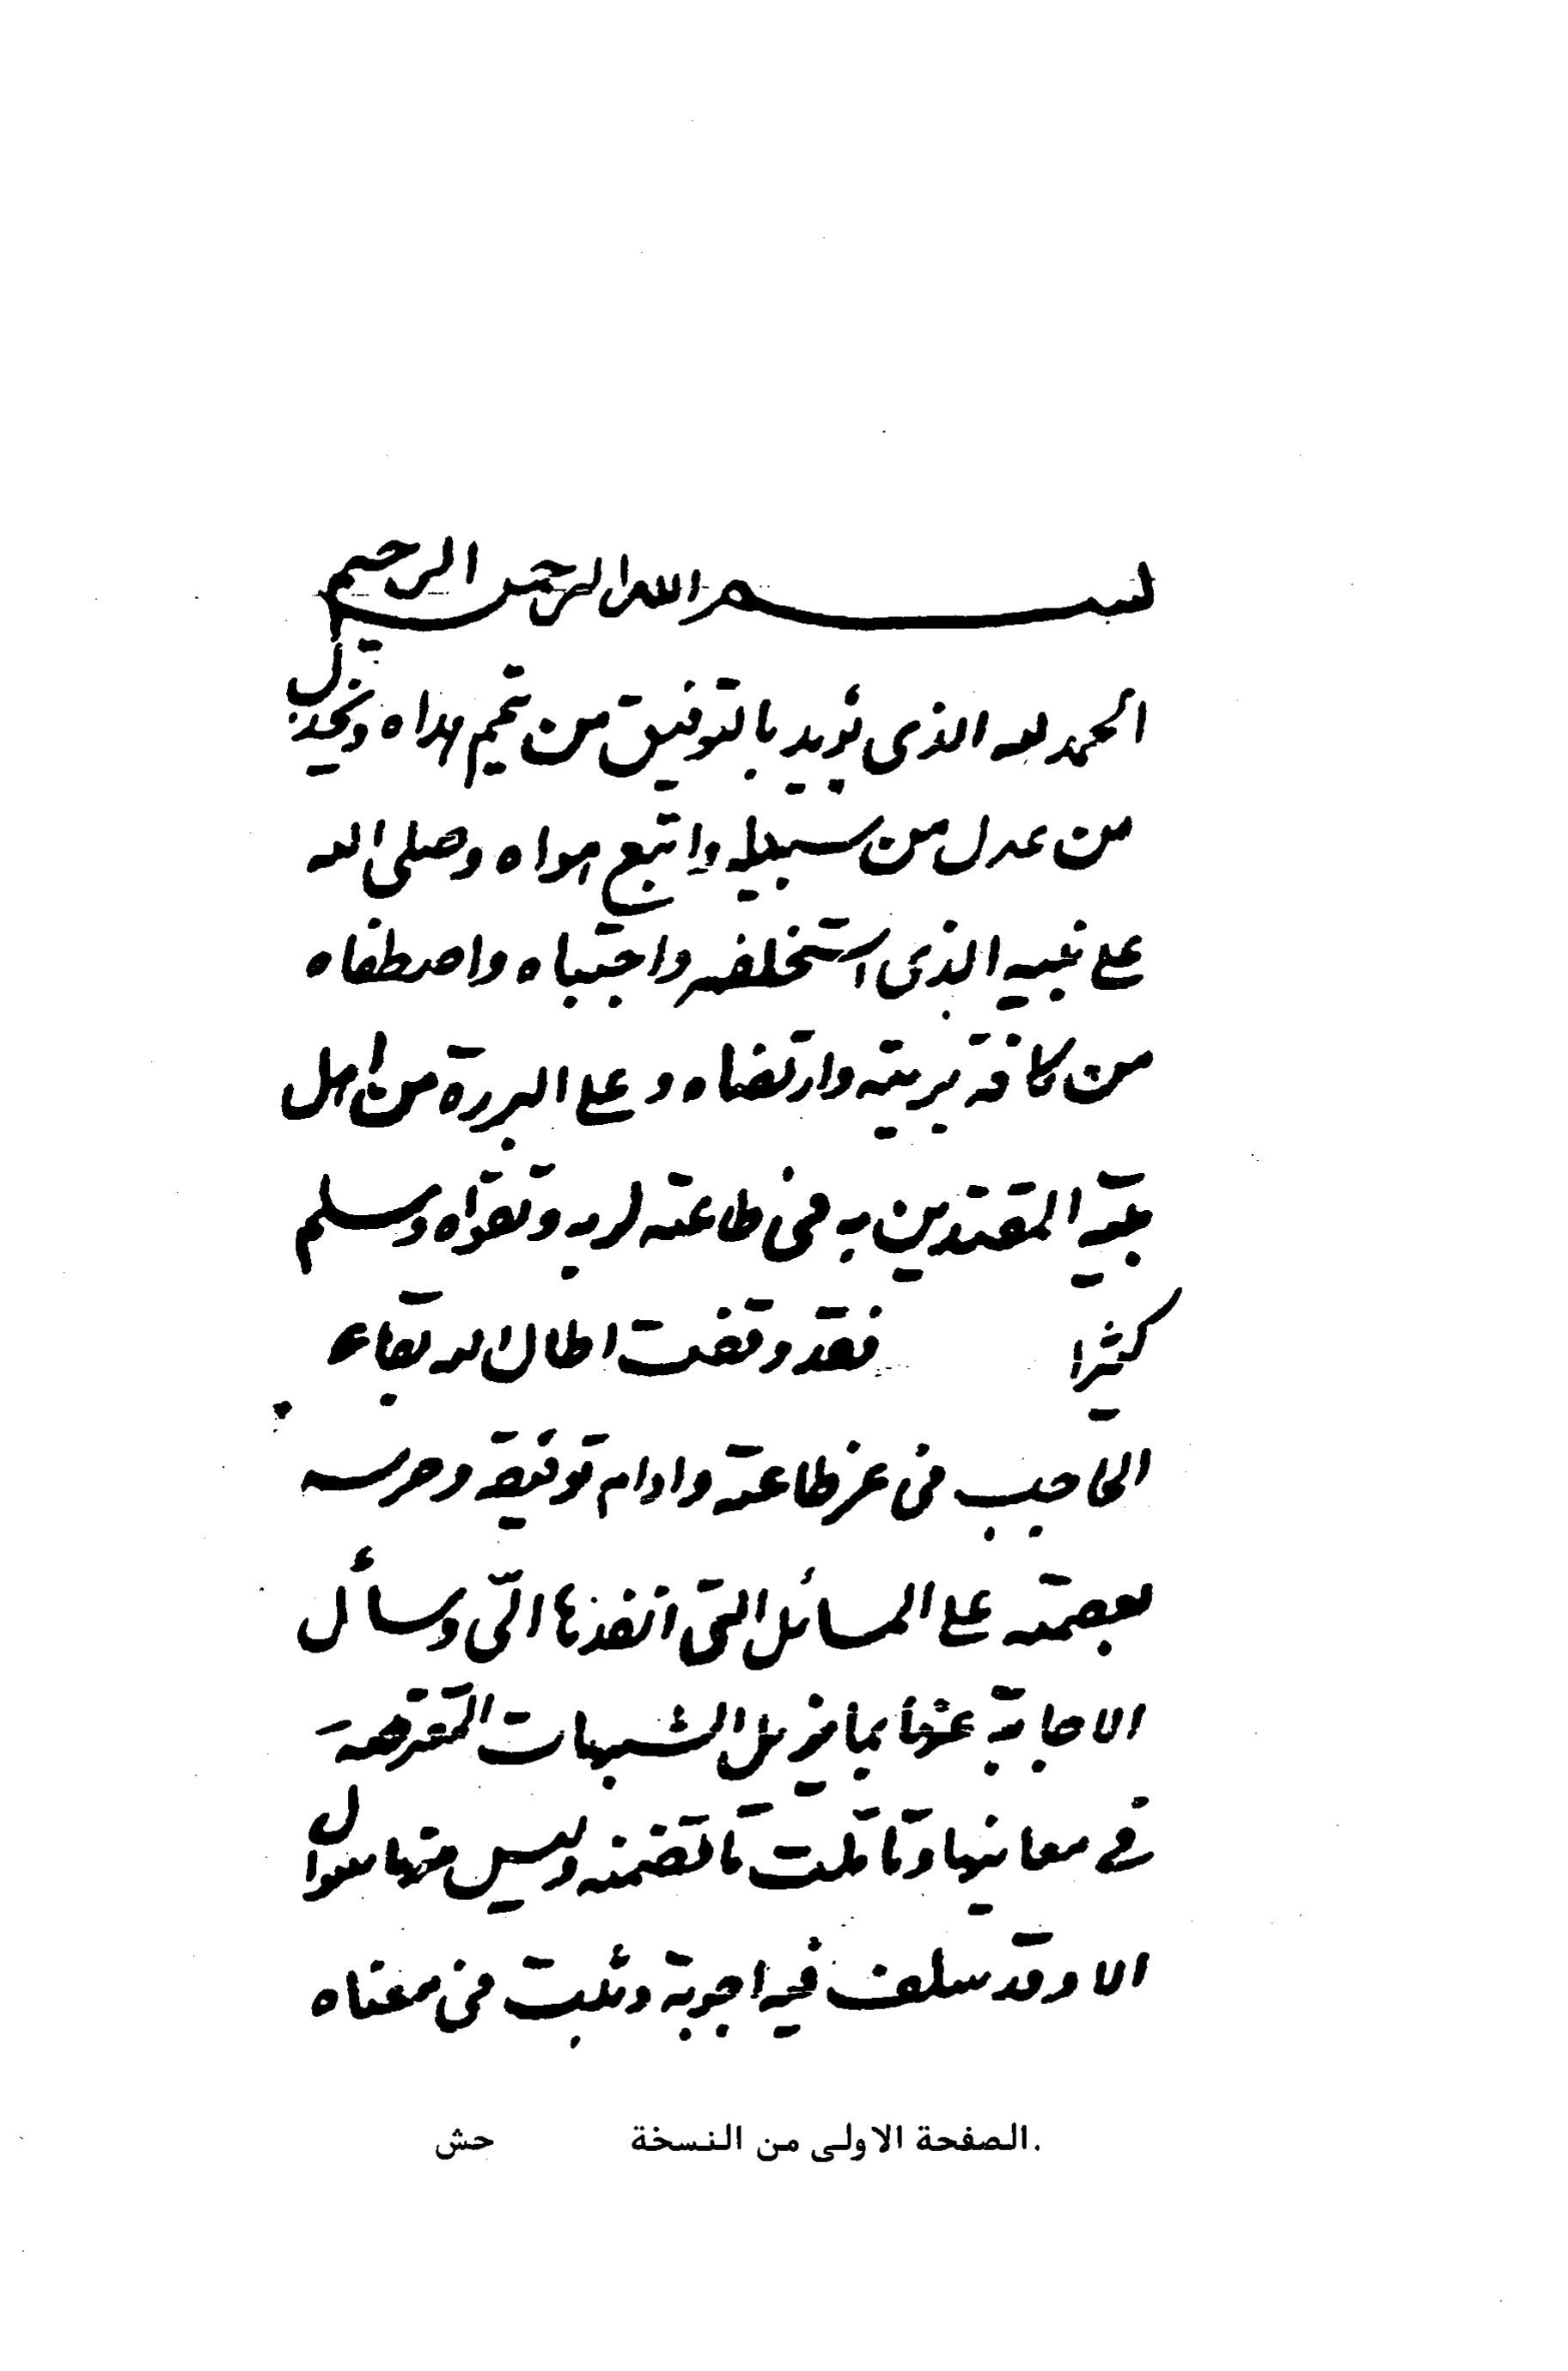 بسم الله الرحمن الرحيم
الحمد لله الذى يؤيد بالتوفيق من تيمم هداه ويخذل
من عدل من سبيله واتبع هواه وصلى الله
على نبيه الذى استخلفه واجتباه واصطفاه
من كافة بريته وارتضاه وعلى البررة من اهل
بيته المقتدين به فى طاعته لربه وتقواه وسلم
كثيرا فقد وقفت اطال الله بقاء
الحاجب فى عز طاعته وادام توفيقه وحرسه
بعصمته على المسائل التى انفذها الىّ وسأل
الاجابة عنها بما يزيل الشبهات المعترضة
فى معانيها وتأملت ما تضمنه وليس منها سؤال
الا وقد سلف فيه اجوبة وثبت فى معناه
الصفحة الاولى من النسخة حش